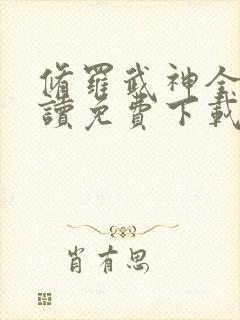 脩羅武神全
讀免費下載
肖有思